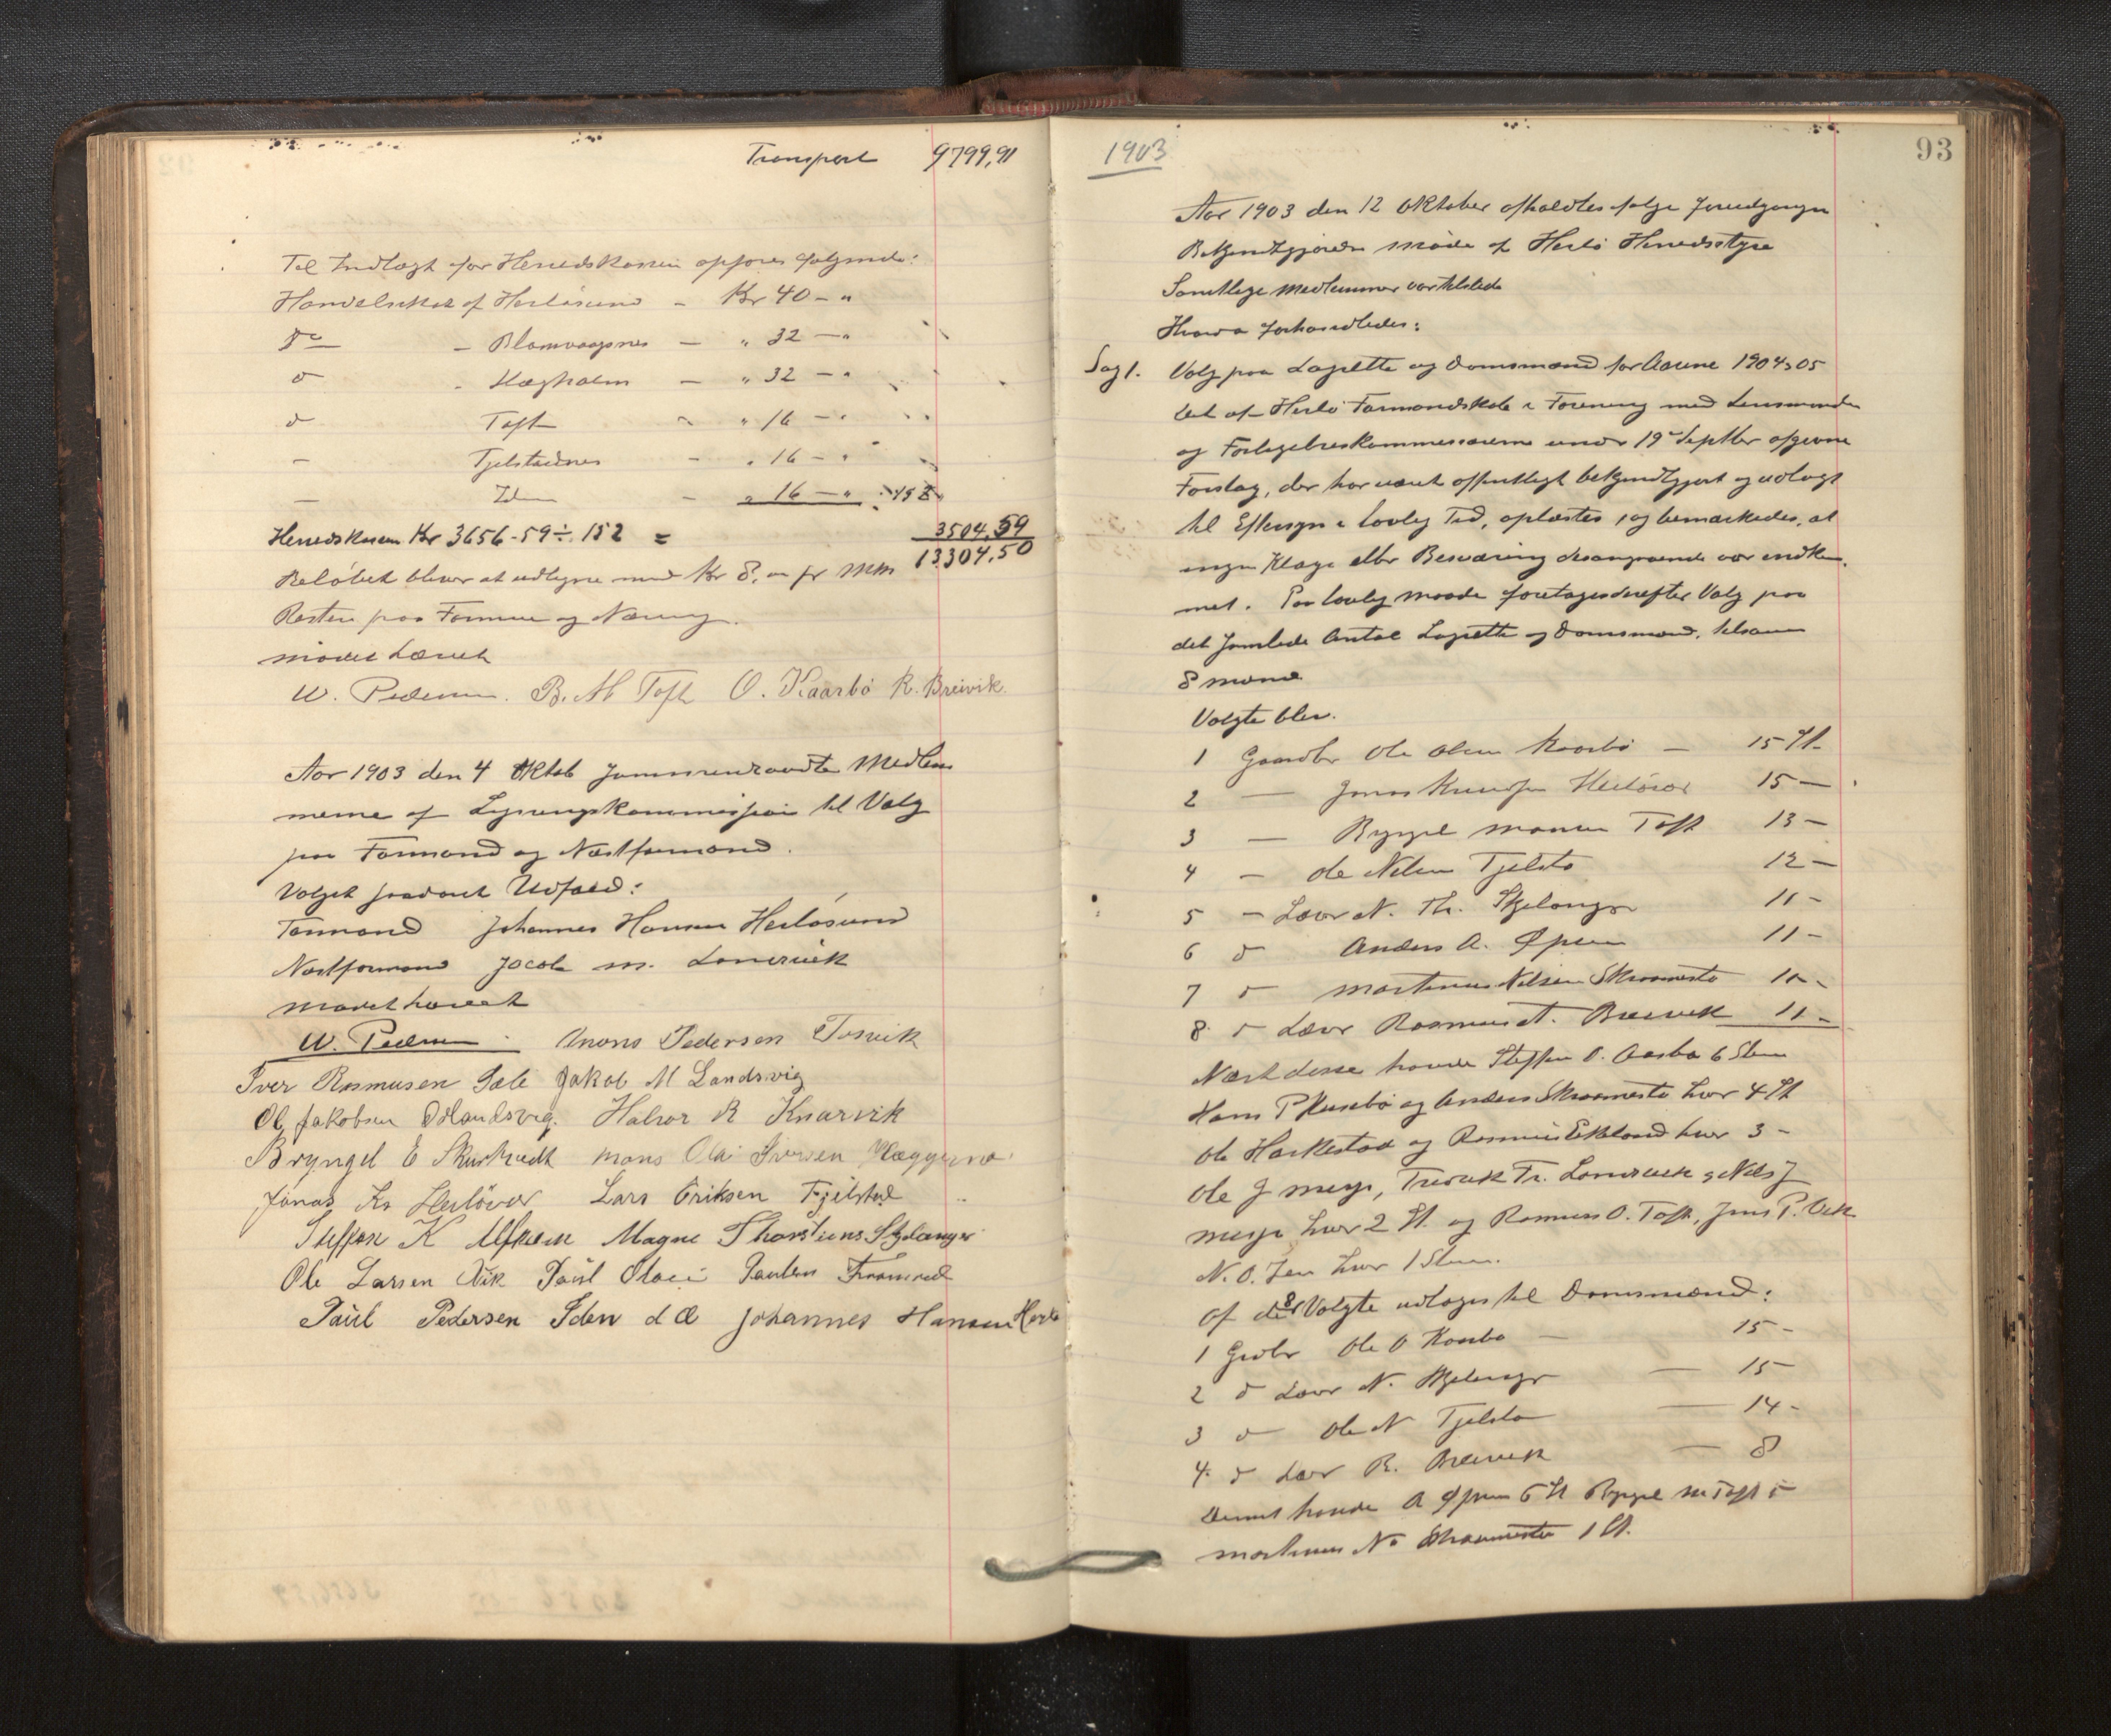 Transport 9799,91
Til Indtægt for Herredskassen opføres følgende:
Handelsskat af Herløsund - Kr 40 - "
Do - Blomvaagsnes - " 32 - "
do - Hægholm - " 32 - "
do Toft - " 16 - "
- Tjelstadnes - " 16 - "
- Iden - " 16 - " 152
Herredskassen Kr 3656-59 ÷ 152 = 3504,59
13304,50
Beløbet bliver at udligne med Kr 8, " pr mm
Resten paa Formue og Næring.
Mødet hævet
W. Pedersen. B. M Toft O. Kaarbø R. Breivik
Aar 1903 den 4 Oktob sammentraadte Medlem
merne af Ligningskommissjon til Valg
paa Formand og Næstformand.
Valget saadant Udfald:
Formand Johannes Hansen Herløsund
Næstformand Jacob M. Landsvik
Mødet hævet
W. Pedersen. Mons Pedersen
Iver Rasmusen Sæle Jakob M Landsvig
Ol. Jakobsen Halvor R Knarvik
Bryngel E Mons Olai Iversen
Jonas Kn Herløvær Lars Eriksen Fjelstad
Steffen K Magne Thorstiens. Skjelanger
Ole Larsen Vik Paul Olai Paulsen
Paul Pedersen Iden d Æ Johannes Hansen Herlø
1903
93
Aar 1903 den 12 Oktober afholdtes ifølge forudgangen
Bekjendtgjørelse Møde af Herlø Herredsstyre
Samtlige Medlemmer var tilstede
Hvorda forhandledes:
Sag 1. Valg paa Lagrette og Domsmænd for Aarene 1904 & 05
Det af Herlø Formandskab i Forening med Lensmanden
og Forligelseskommissærerne under 19de Septbr afgivne
Forslag, der har været offentligt bekjendtgjort og udlagt
til Eftersyn i lovlig Tid, oplæstes, og bemærkedes, at
ingen Klage eller Besværing desangaaende var indkom-
met. Paa lovlig Maade foretages derefter Valg paa
det samlede Antal Lagrette og Domsmænd, tilsam
8 Mænd
Valgte blev.
1 Gaardbr Ole Olsen Kaarbø - 15 St.
2 - Jonas Knudsen Herløvær 15 -
3 - Bryngel Monsen Toft 13 -
4 - Ole Nilsen Tjelsta 12 -
5 - Lavr N. Th. Skjelanger 11 -
6 do Anders A. Øpsen 11 -
7 do Martinus Nilsen Skraamestø 11 -
8. do Lavr Rasmus. Breivik 11 -
Næst disse havde Steffen O. Aasbø 6 Stem
Hans P Husebø og Anders Skraamestø hver 4 St
Ole Harkestad og Rasmus Ekeland hver 3 -
Ole J Misje, Fredrik Fr. Landsvik & Nils J
Misje hver 2 St. og Rasmus O. Toft, Jens P. Vik
N. O. Iden hver 1 Stem.
Af de 8 Valgte udtoges til Domsmænd:
1 Grdbr Ole O Kaarbø - 15 -
2 do Lavr N. Skjelanger - 15
3 do Ole N Tjelsta - 14 -
4. do Lavr R. Breivik - 8
Dernæst havde A Øpsen 6 St Bryngel M Toft 5
Martinus N. Skraamestø 1 St.